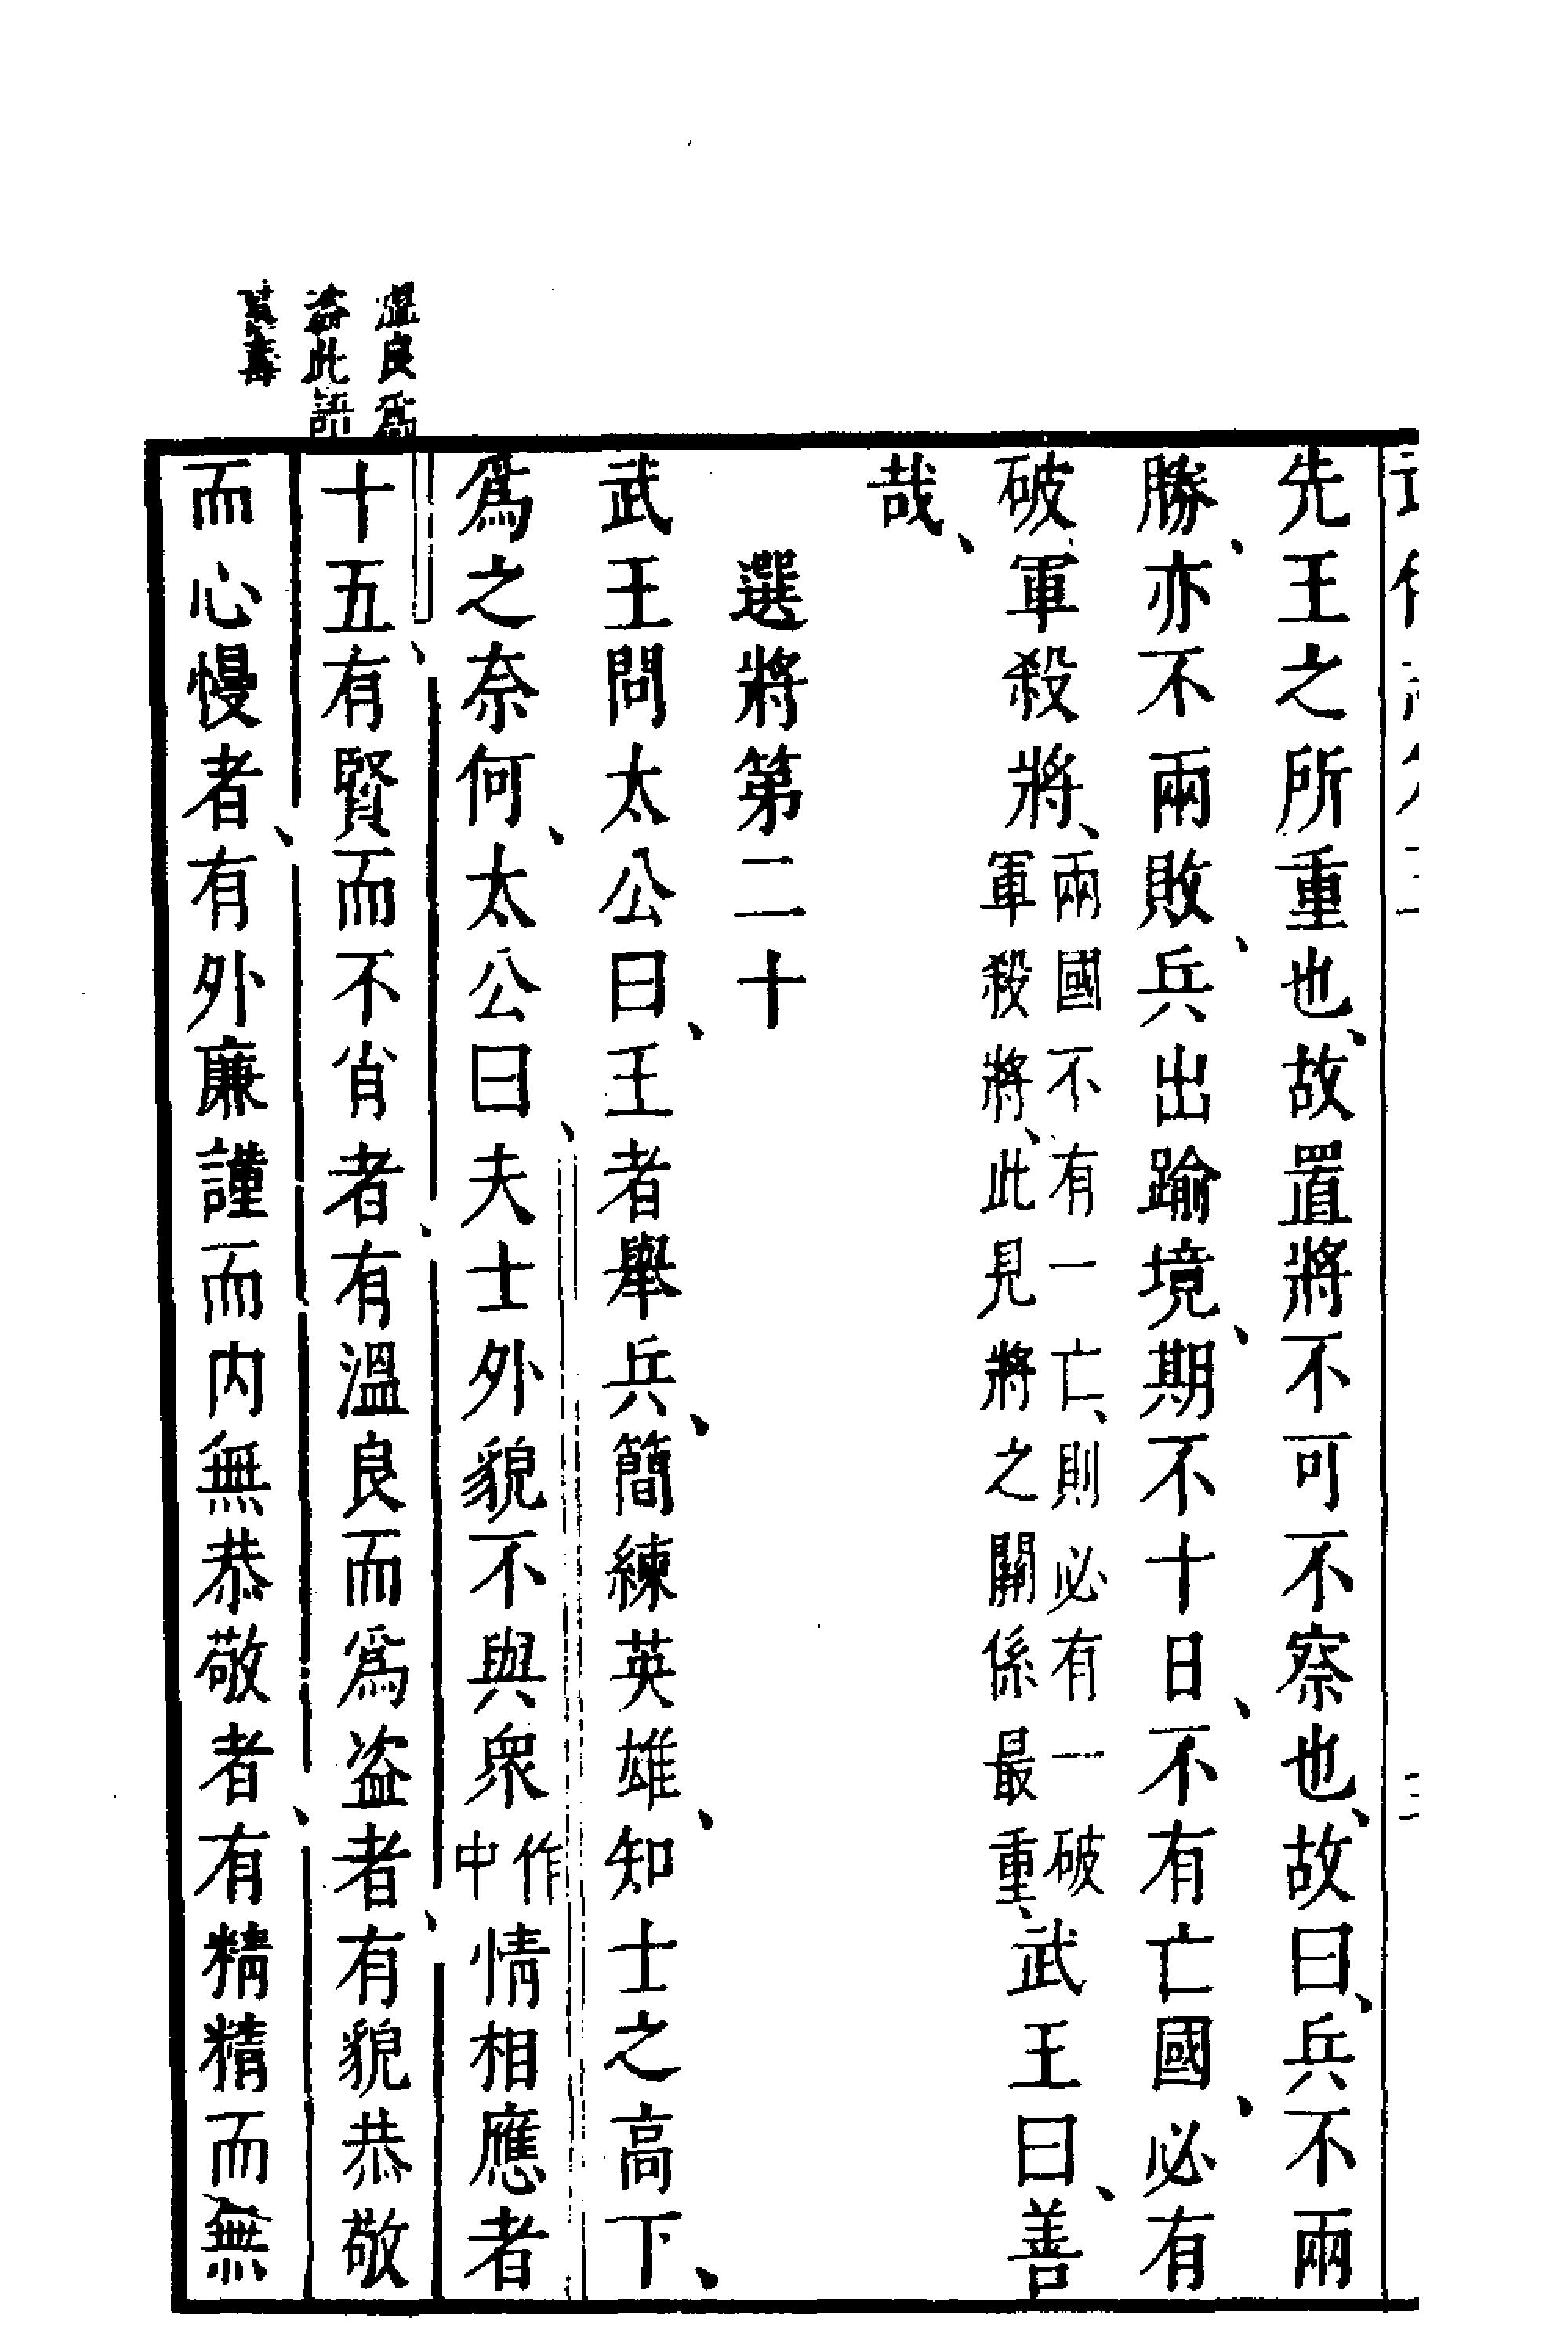 先王之所重也、故置將不可不察也、故曰、兵不兩
勝、亦不兩敗、兵出踰境、期不十日、不有亡國、必有
破軍殺將、兩國不有一亡、則必有一破
軍殺將、此見將之關係最重、武王曰、善
哉、
選將第二十
武王問太公曰、王者舉兵、簡練英雄、知士之高下、
爲之奈何、太公曰、夫士外貌不與衆作
中情相應者
十五、有賢而不肖者、有溫良而爲盜者、有貌恭敬
而心慢者、有外廉謹而内無恭敬者、有精精而無
溫良爲
盜此語